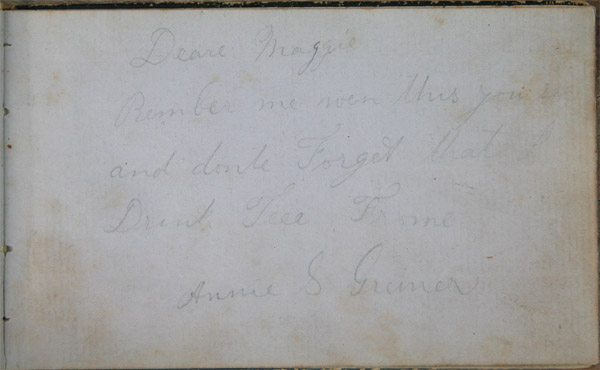 Deare Maggie
Rember me wen this you se
and donte Forget that I
Drink Teea Frome
Annie S